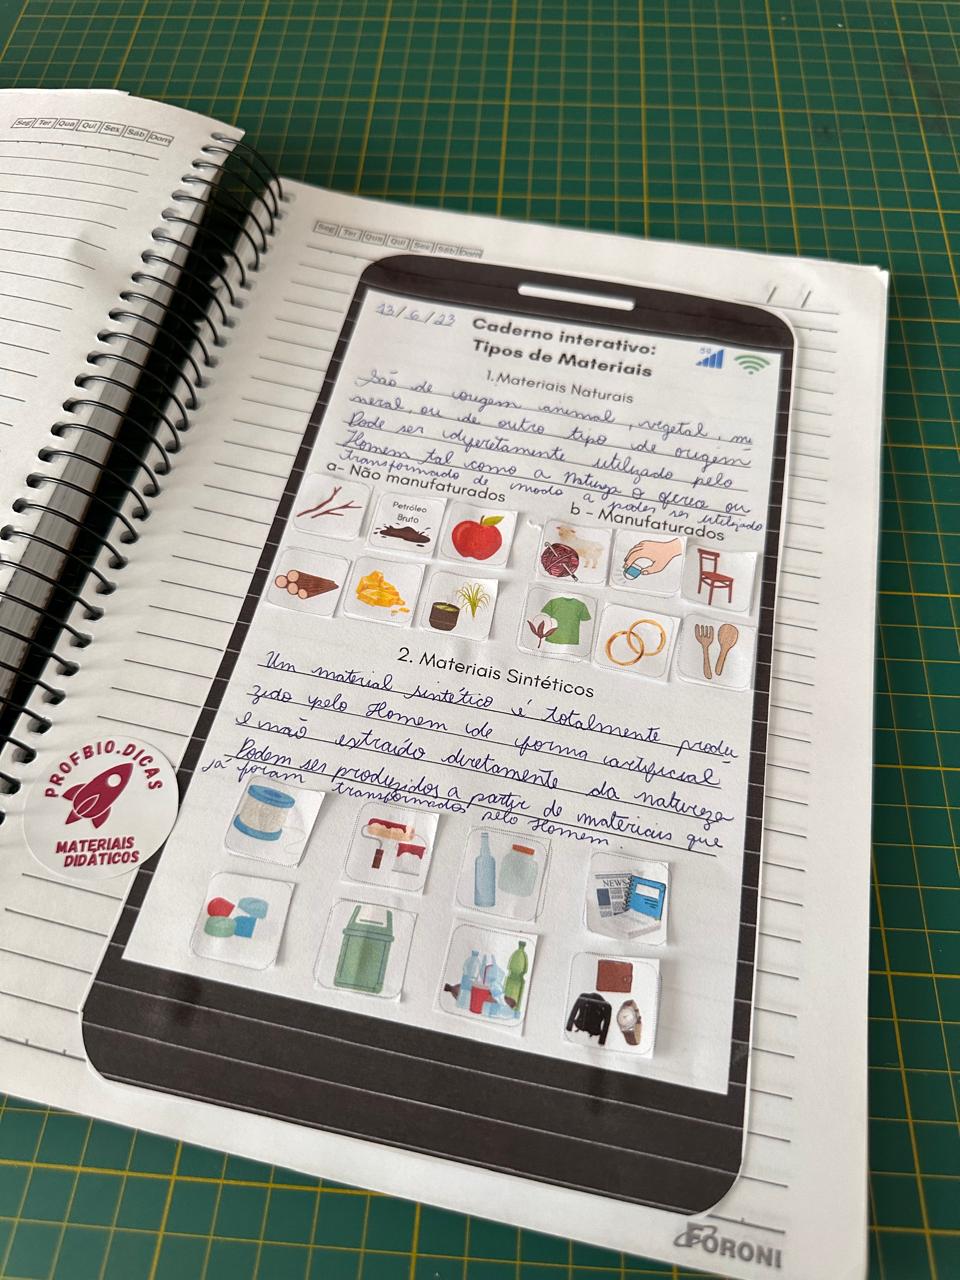 Seg Ter Qua Qui Sex Sáb Dom
Seg Ter Qua Qui Sex Sáb Dom
/ /
13/6/23
Caderno interativo:
Tipos de Materiais
5G
1. Materiais Naturais
São de origem animal, vegetal, mi
neral, ou de outro tipo de origem
Pode ser diretamente utilizado pelo
Homem tal como a natureza o oferece ou
transformado de modo a poder ser utilizado
a- Não manufaturados
b - Manufaturados
Petróleo
Bruto
2. Materiais Sintéticos
Um material sintético é totalmente produ
zido pelo Homem de forma artificial
e não extraído diretamente da natureza
Podem ser produzidos a partir de materiais que
já foram transformados pelo Homem.
NEWS
PROFBIO.DICAS
MATERIAIS
DIDÁTICOS
FORONI